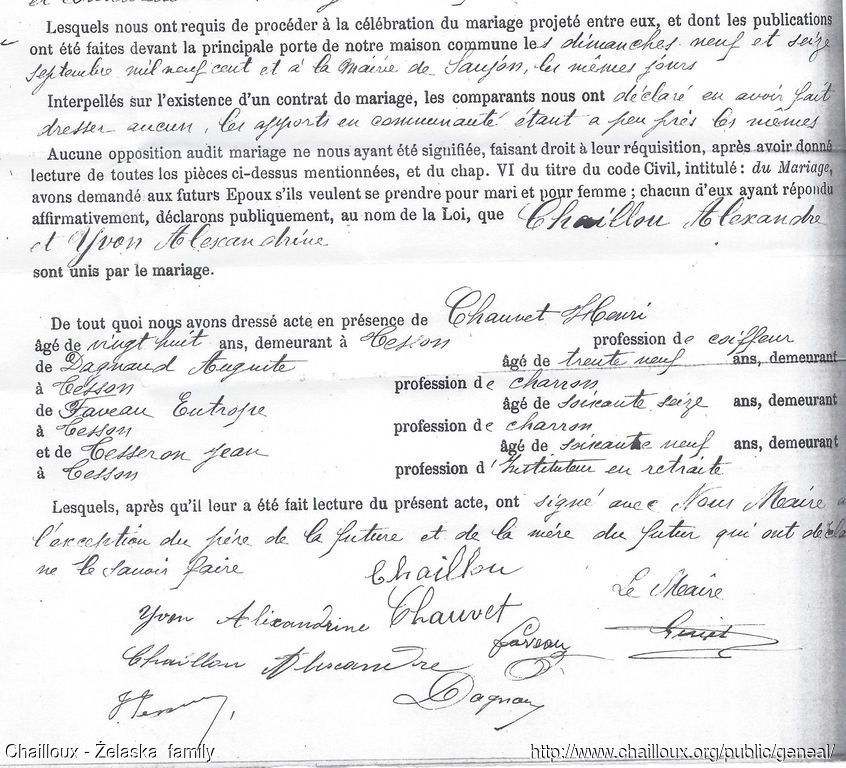 Lesquels nous ont requis de procéder à la célébration du mariage projeté entre eux, et dont les publications
ont été faites devant la principale porte de notre maison commune les dimanches neuf et seize
septembre mil neuf cent et à la Mairie de Saujon, les mêmes jours
Interpellés sur l'existence d'un contrat de mariage, les comparants nous ont déclaré en avoir fait
dresser aucun, les apports en communauté étant a peu près les mêmes
Aucune opposition audit mariage ne nous ayant été signifiée, faisant droit à leur réquisition, après avoir donné
lecture de toutes les pièces ci-dessus mentionnées, et du chap. VI du titre du code Civil, intitulé : du Mariage,
avons demandé aux futurs Epoux s'ils veulent se prendre pour mari et pour femme ; chacun d'eux ayant répondu
affirmativement, déclarons publiquement, au nom de la Loi, que Chaillou Alexandre
et Yvon Alexandrine
sont unis par le mariage.
De tout quoi nous avons dressé acte en présence de Chauvet Henri
âgé de vingt huit ans, demeurant à Tesson profession de coiffeur
de Dagnaud Auguste âgé de trente neuf ans, demeurant
à Tesson profession de charron
de Faveau Eutrope âgé de soixante seize ans, demeurant
à Tesson profession de charron
et de Tesseron Jean âgé de soixante neuf ans, demeurant
à Tesson profession d'Instituteur en retraite
Lesquels, après qu'il leur a été fait lecture du présent acte, ont signé avec Nous Maire
l'exception du père de la future et de la mère du futur qui ont décla
ne le savoir faire
Chaillou
Le Maire
Yvon Alixandrine Chauvet
Faveau
Chaillou Alexandre
Dagnau
Chailloux - Želaska family
http://www.chailloux.org/public/geneal/